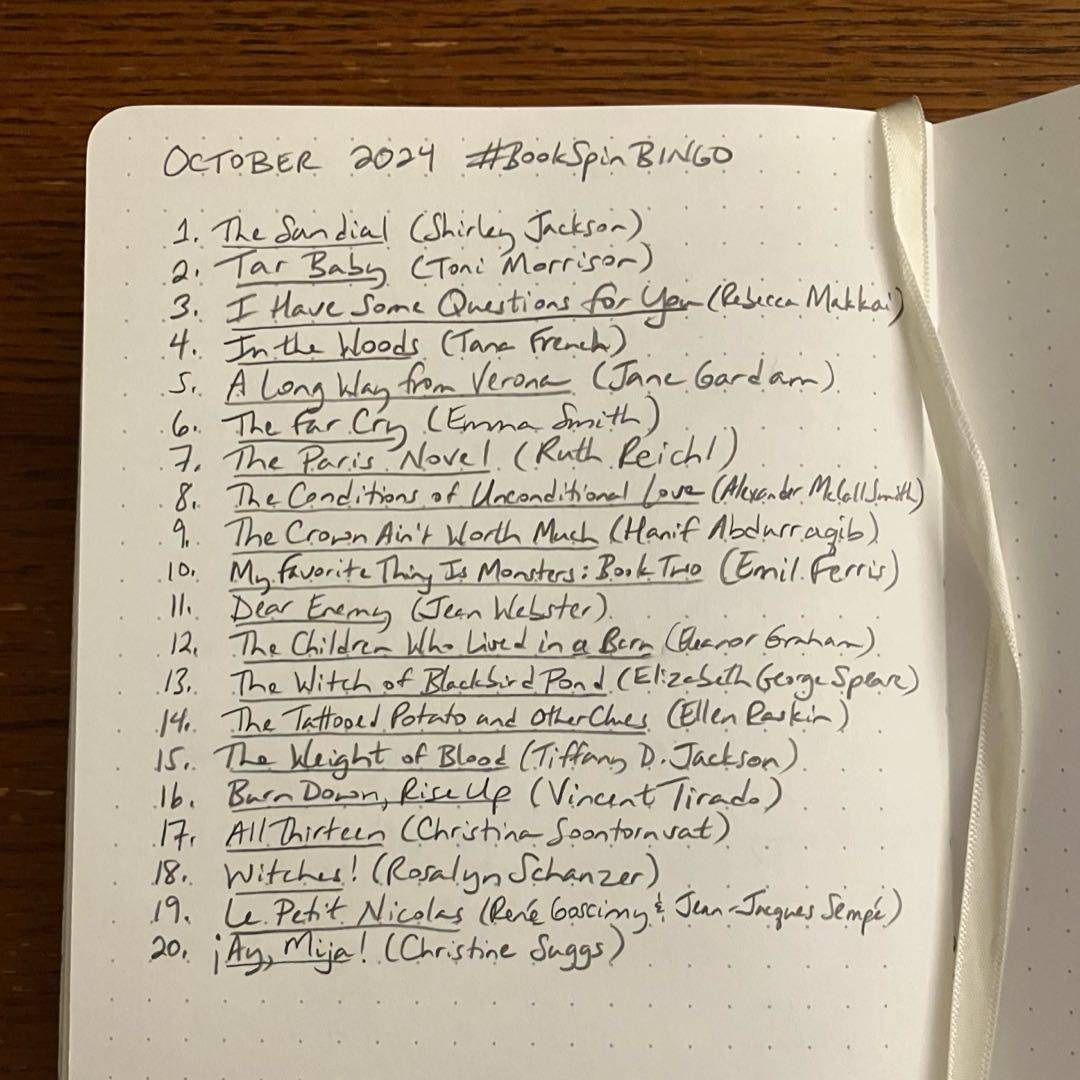 OCTOBER 2024 #BookSpinBINGO
1. The Sundial (Shirley Jackson)
2. Tar Baby (Toni Morrison)
3. I Have Some Questions for You (Rebecca Makkai)
4. In the Woods (Tana French)
5. A Long Way from Verona (Jane Gardam)
6. The Far Cry (Emma Smith)
7. The Paris Novel (Ruth Reichl)
8. The Conditions of Unconditional Love (Alexander McCall Smith)
9. The Crown Ain't Worth Much (Hanif Abdurraqib)
10. My Favorite Thing Is Monsters: Book Two (Emil Ferris)
11. Dear Enemy (Jean Webster)
12. The Children Who Lived in a Barn (Eleanor Graham)
13. The Witch of Blackbird Pond (Elizabeth George Speare)
14. The Tattooed Potato and Other Clues (Ellen Raskin)
15. The Weight of Blood (Tiffany D. Jackson)
16. Burn Down, Rise Up (Vincent Tirado)
17. All Thirteen (Christina Soontornvat)
18. Witches! (Rosalyn Schanzer)
19. Le Petit Nicolas (René Goscinny & Jean-Jacques Sempé)
20. ¡Ay, Mija! (Christine Suggs)